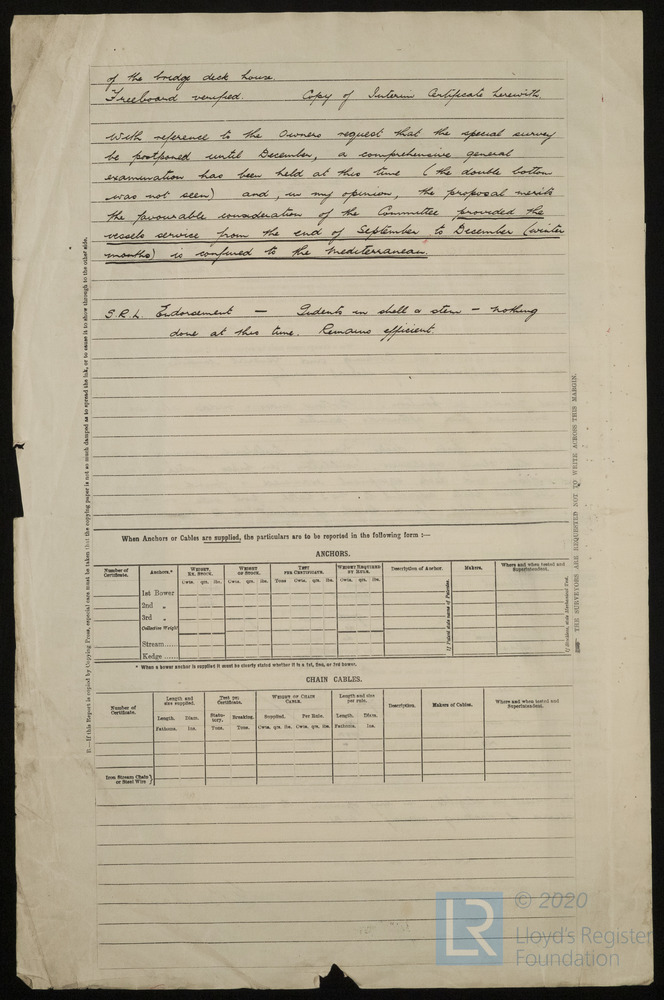 of the bridge deck house.
Freeboard verified. Copy of Interim Certificate herewith.
With reference to the Owners request that the special survey
be postponed until December, a comprehensive general
examination has been held at this time (the double bottom
was not seen) and, in my opinion, the proposal merits
the favourable consideration of the Committee provided the
vessels service from the end of September to December (winter
months) is confined to the Mediterranean.
S.R.L. Endorsement — Indents in shell & stem — nothing
done at this time. Remains efficient
When Anchors or Cables are supplied, the particulars are to be reported in the following form :—
ANCHORS.
Number of Certificate. Anchors.* WEIGHT, EX. STOCK. WEIGHT OF STOCK. TEST PER CERTIFICATE. WEIGHT REQUIRED BY RULE. Description of Anchor. Makers. Where and when tested and Superintendent.
Cwts. qrs. lbs. Cwts. qrs. lbs. Tons Cwts. qrs. lbs. Cwts. qrs. lbs.
1st Bower
2nd „
3rd „
Collective Weight
Stream
Kedge
If Patent state name of Patentee.
* When a bower anchor is supplied it must be clearly stated whether it is a 1st, 2nd, or 3rd bower.
CHAIN CABLES.
Number of Certificate. Length and size supplied. Test per Certificate. WEIGHT OF CHAIN CABLE. Length and size per rule. Description. Makers of Cables. Where and when tested and Superintendent.
Length. Diam. Statutory. Breaking. Supplied. Per Rule. Length. Diam.
Fathoms. Ins. Tons. Tons. Cwts. qrs. lbs. Cwts. qrs. lbs. Fathoms. Ins.
Iron Stream Chain or Steel Wire }
—If this Report is copied by Copying Press, especial care must be taken that the copying paper is not so much damped as to spread the ink, or to cause it to show through to the other side.
THE SURVEYORS ARE REQUESTED NOT TO WRITE ACROSS THIS MARGIN.
© 2020
LR
Lloyd's Register
Foundation